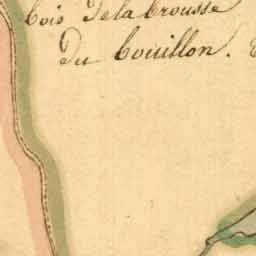 bois de la brousse
du bouillon.